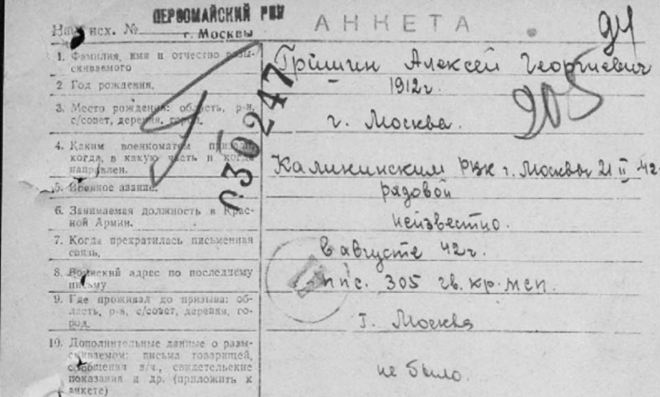 ПЕРВОМАЙСКИЙ РВК
г. Москвы
На исх. №
АНКЕТА
1. Фамилия, имя и отчество разыскиваемого
Гришин Алексей Георгиевич
2. Год рождения.
1912г.
3. Место рождения: область, р-н,
с/совет, деревня, город.
г. Москва.
4. Каким военкоматом призван,
когда, в какую часть и когда
направлен.
Калининским РВК г. Москвы 21 II 42
5. Военное звание.
рядовой
6. Занимаемая должность в Крас-
ной Армии.
неизвестно.
7. Когда прекратилась письменная
связь.
в августе 42г.
8. Воинский адрес по последнему
письму
ппс. 305 гв. кр.
9. Где проживал до призыва: об-
ласть, р-н, с/совет, деревня, го-
род.
г. Москва
10. Дополнительные данные о разы-
скиваемом: письма товарищей,
сообщения в/ч., свидетельские
показания и др. (приложить к
анкете)
не было.
030247
94
905